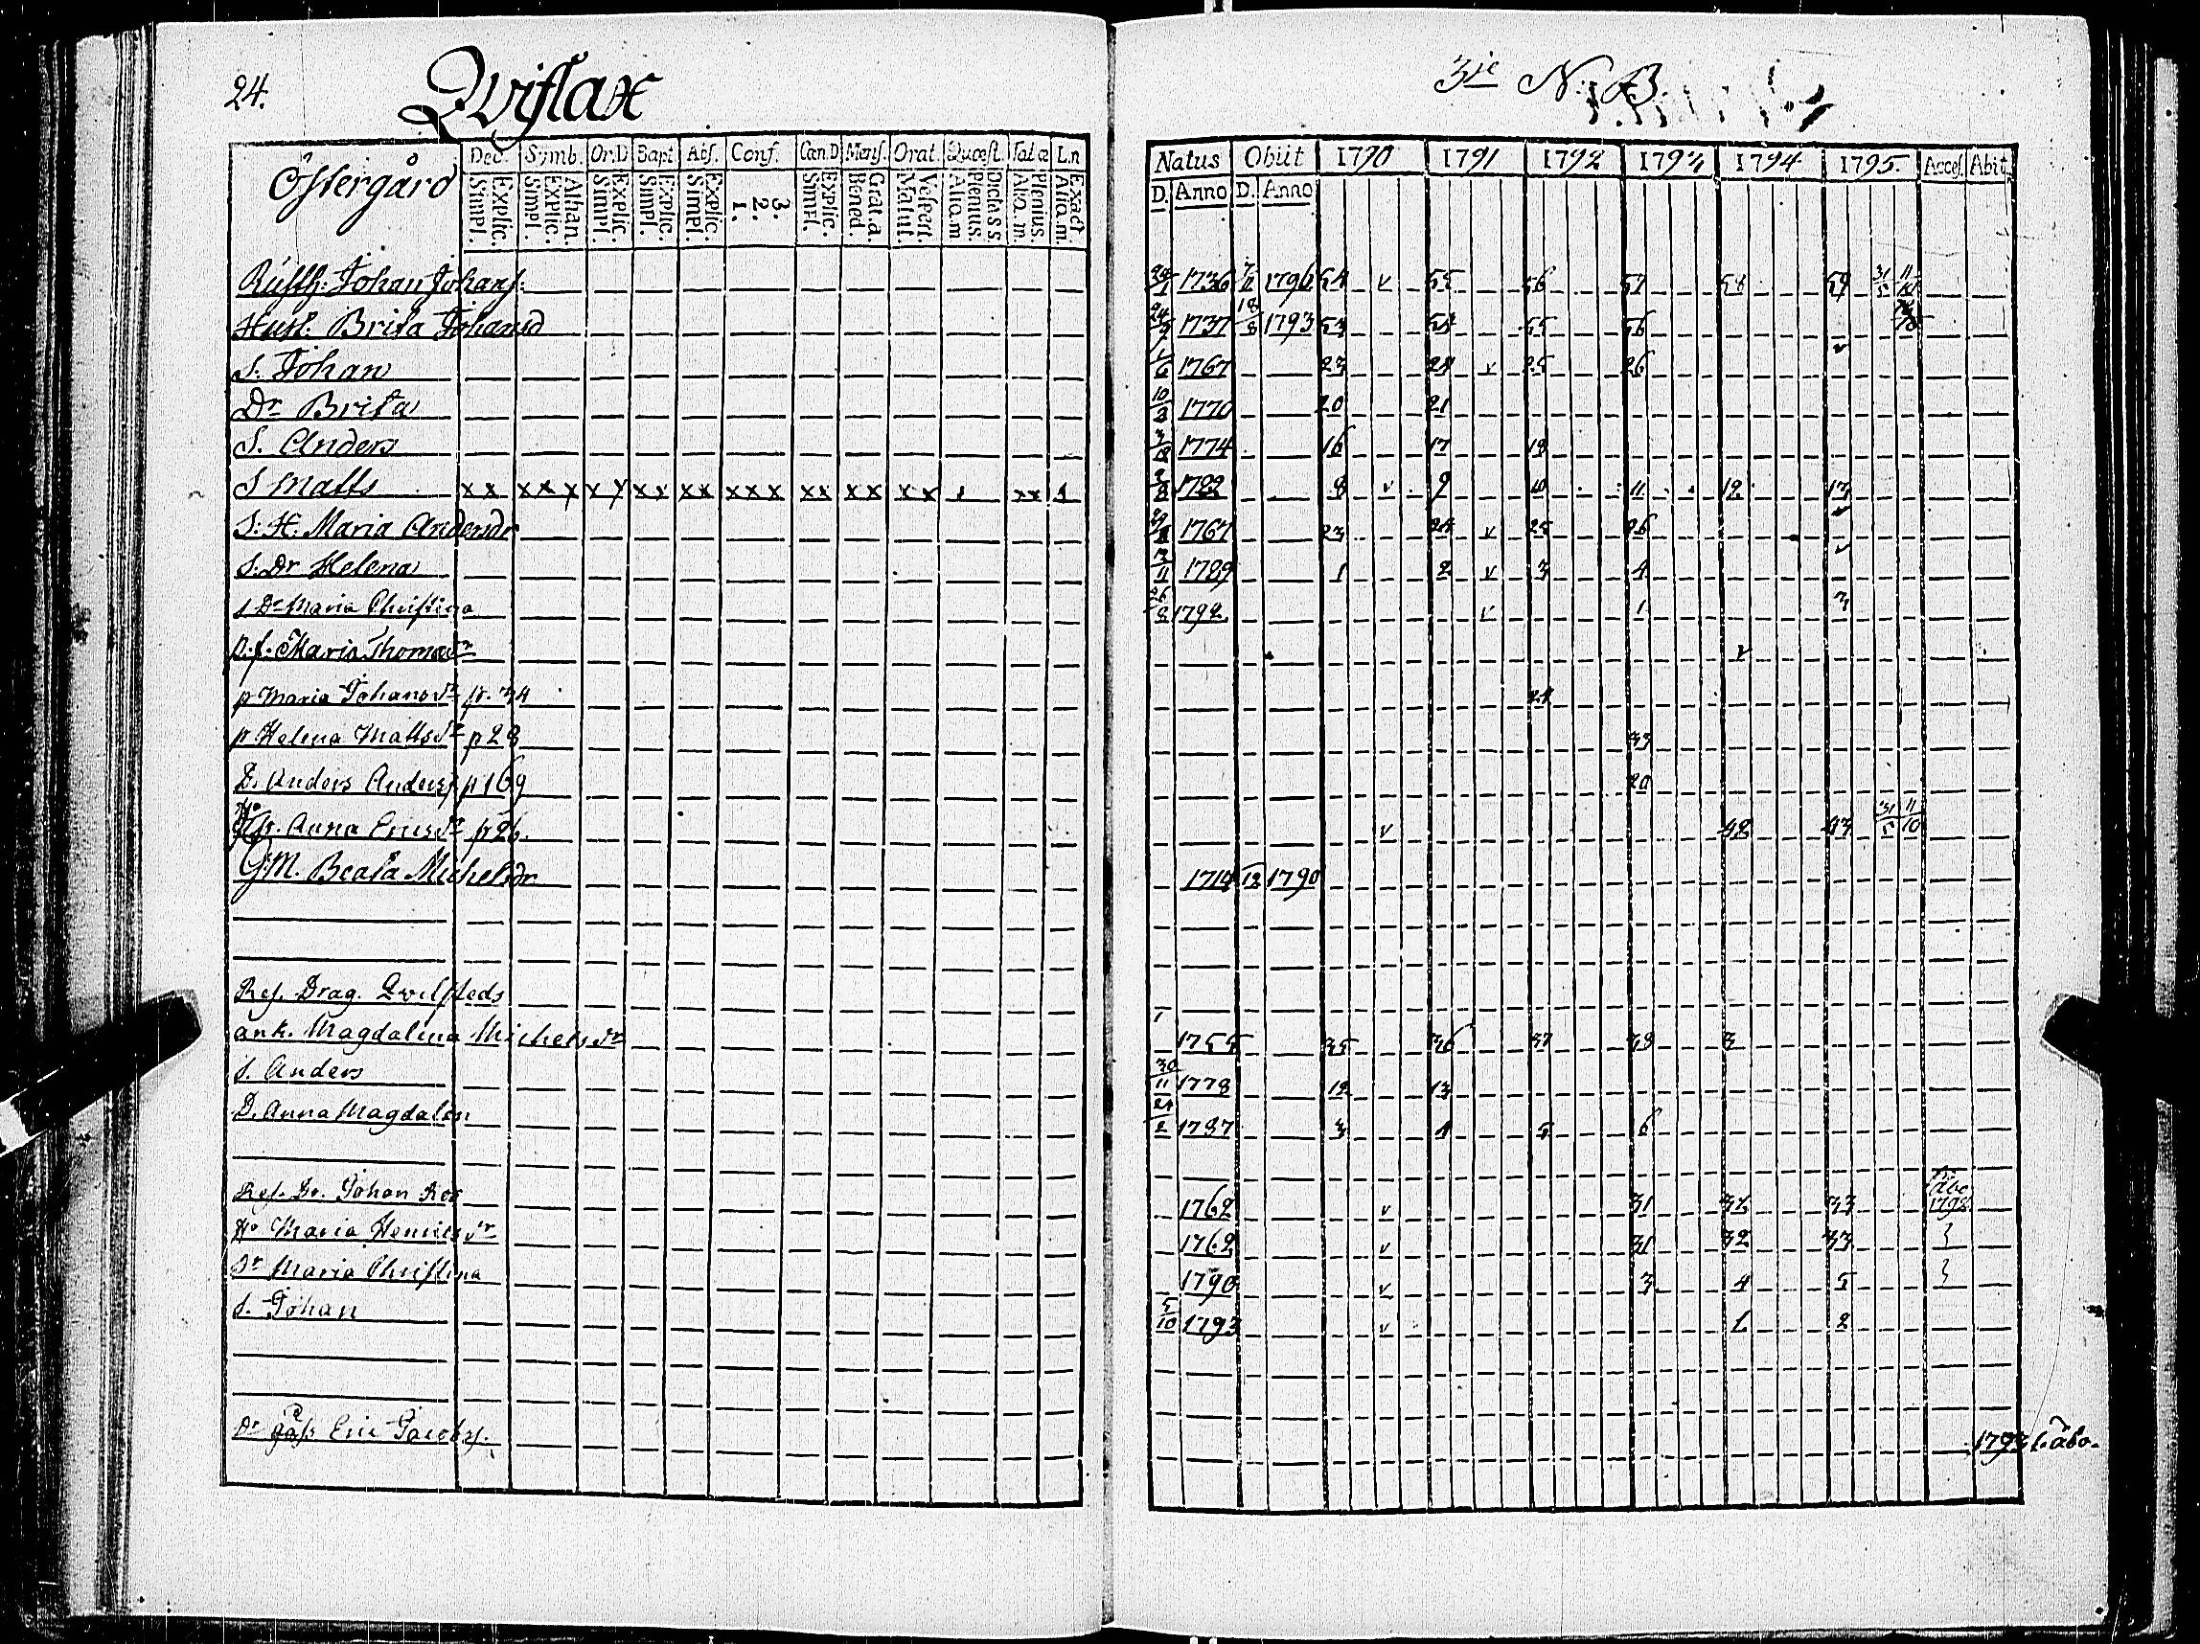 24. Qviflax
3ie N. B.
Östergård Dec. Symb. Or.D Bapt Abs. Conf. Cæn.D Mens. Orat. Quæst. Tabæ L.n
Simpl. Explic. Simpl. Explic. Athan. Simpl. Explic. Simpl. Explic. Simpl. Explic. 1. 2. 3. Simpl. Explic. Bened Grat.a. Matut. Vespert. Aliq.m Plenius. Dicta s.s. Alio.m. Plenius. Alio.m. Exact
Natus Obiit 1790 1791 1792 1793 1794 1795. Acces. Abit
D. Anno D. Anno
Rusth: Johan Johans: 1736 7/11 1796 54 v 55 56 57 58 59 31/5 11/10
Hust. Brita Johansd 24/7 1737 18/8 1793 53 54 55 56
S. Johan 1/6 1767 23 24 v 25 26 v
Dr Brita 10/3 1770 20 21
S. Anders 1774 16 17 18
S Matts x x x x x x x x x x x x x x x x x x x x x x 1 1782 8 v 9 10 11 12 13
S: H. Maria Andersdr 1767 23 24 v 25 26 v
S: Dr Helena 13/11 1789 1 2 v 3 4 v
s Dr Maria Christina 26/8 1792 v 1 3
p.f. Maria Thomasdr v
p Maria Johansdr p. 34 24
p Helena Mattsdr p 28 33
D. Anders Anders. p 169 20
Anna Ericsdr p 26. v 42 43 31/5 11/10
G.M. Beata Michelsdr 1714 12 1790
Ref. Drag. Qvilsteds
ank. Magdalena Michelsdr 1755 35 36 37 38 3
S. Anders 30/11 1778 12 13
D. Anna Magdalen 24/2 1787 3 4 5 6
Ref. Dr. Johan Ros 1762 v 31 32 33 1792
Ho Maria Henricsdr 1762 v 31 32 33
Dr Maria Christina 1790 v 3 4 5
S. Johan 5/10 1793 v 1 2
Dr Eric Jacobs. 1793 t. åbo.